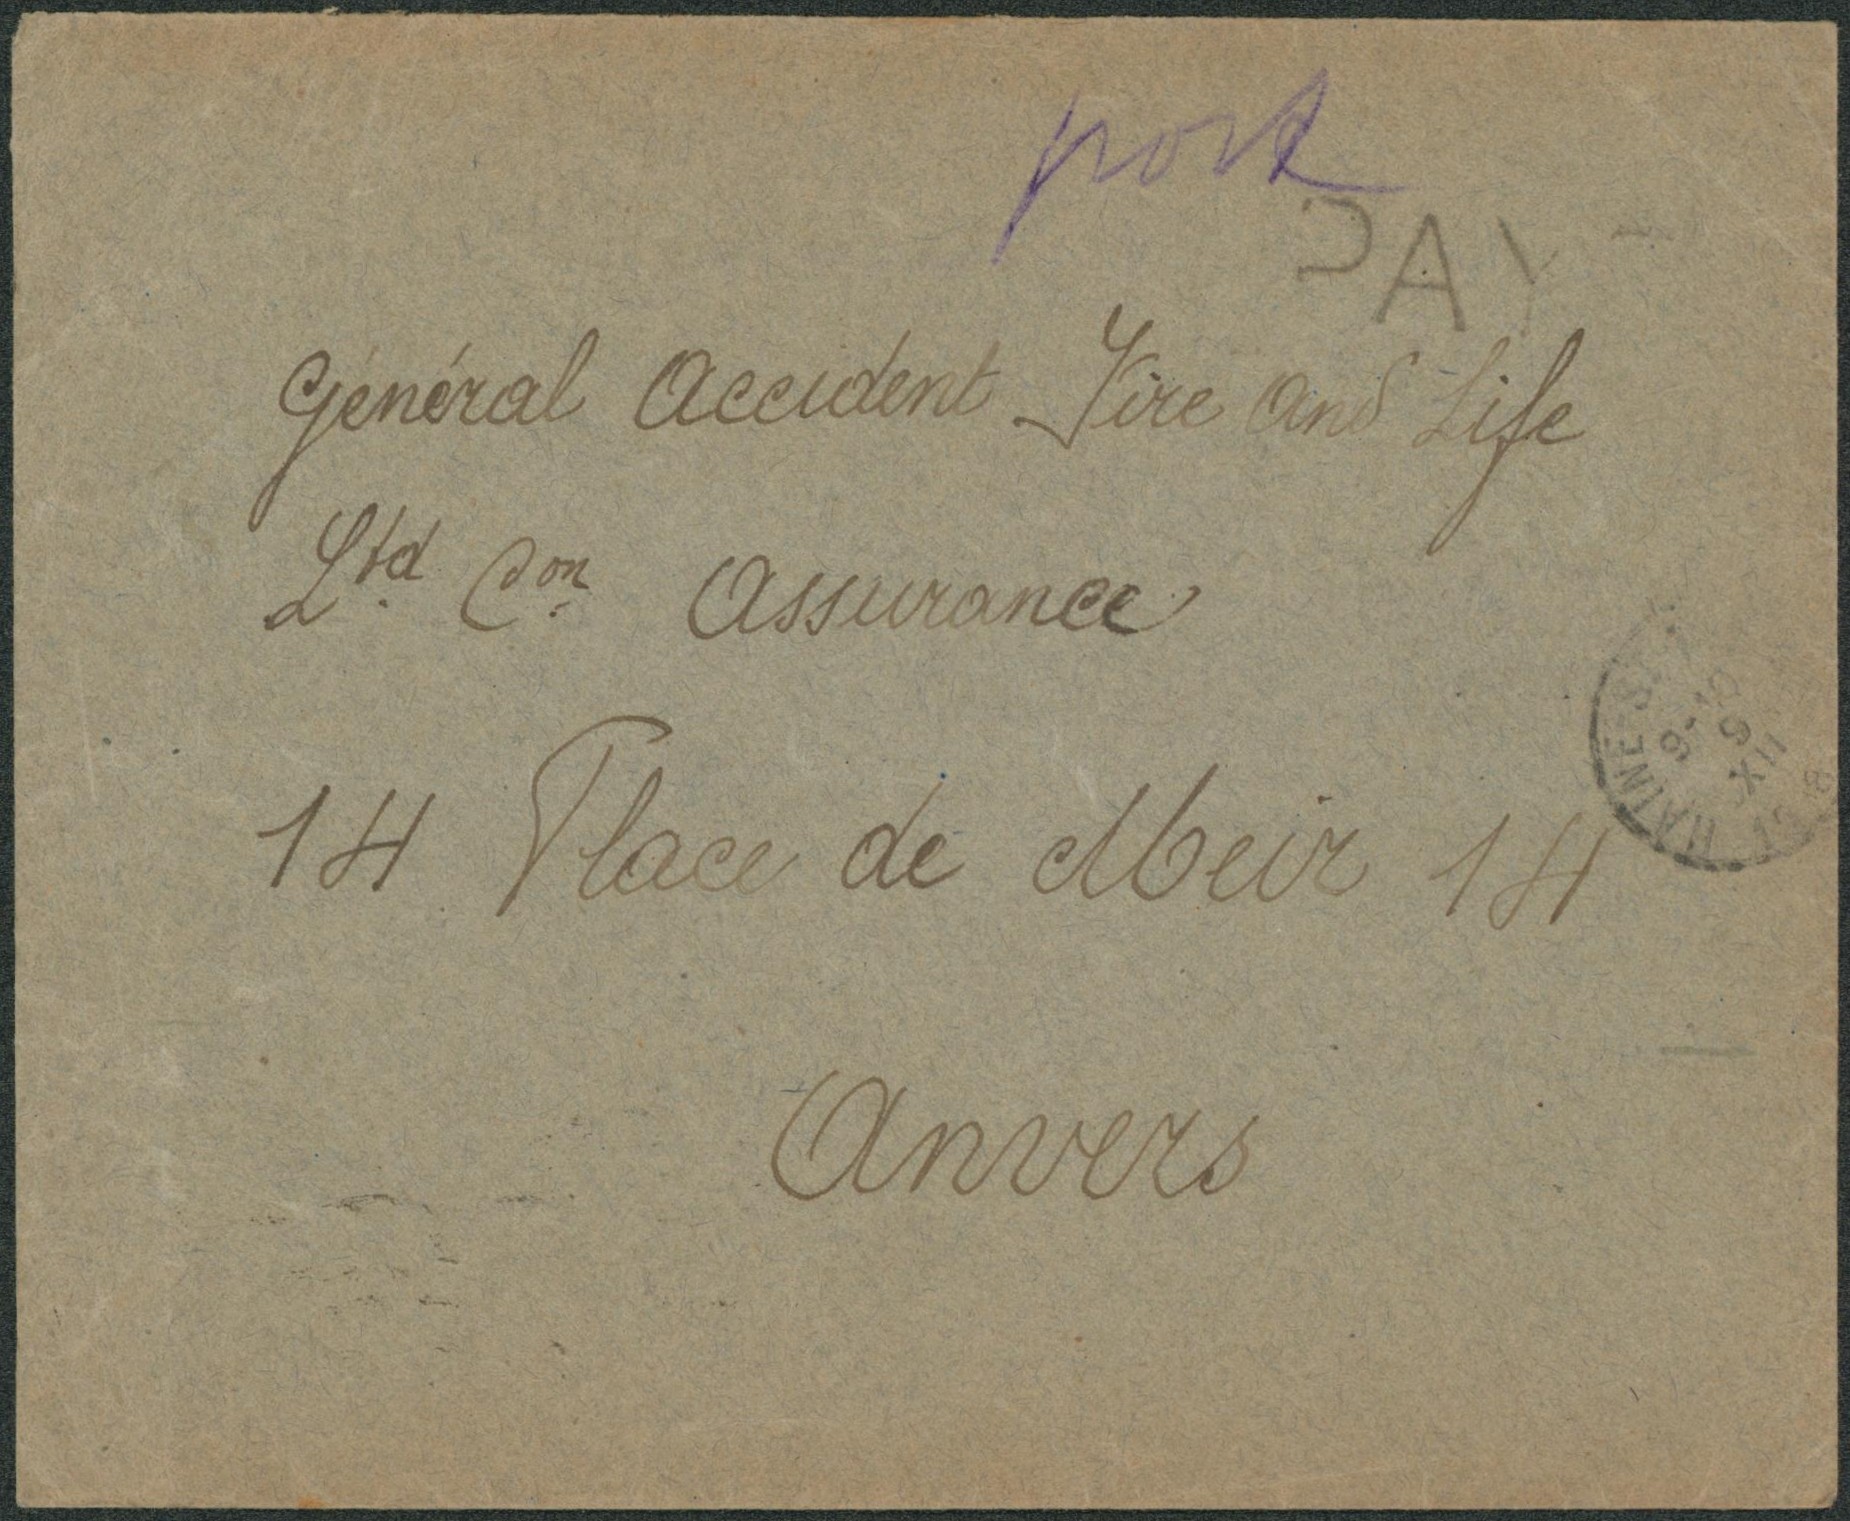 port
PAY
Général Accident Fire and Life
Ltd. Con. Assurance
14 Place de Meir 14
Anvers
HAINE-ST
9-10
9
XII